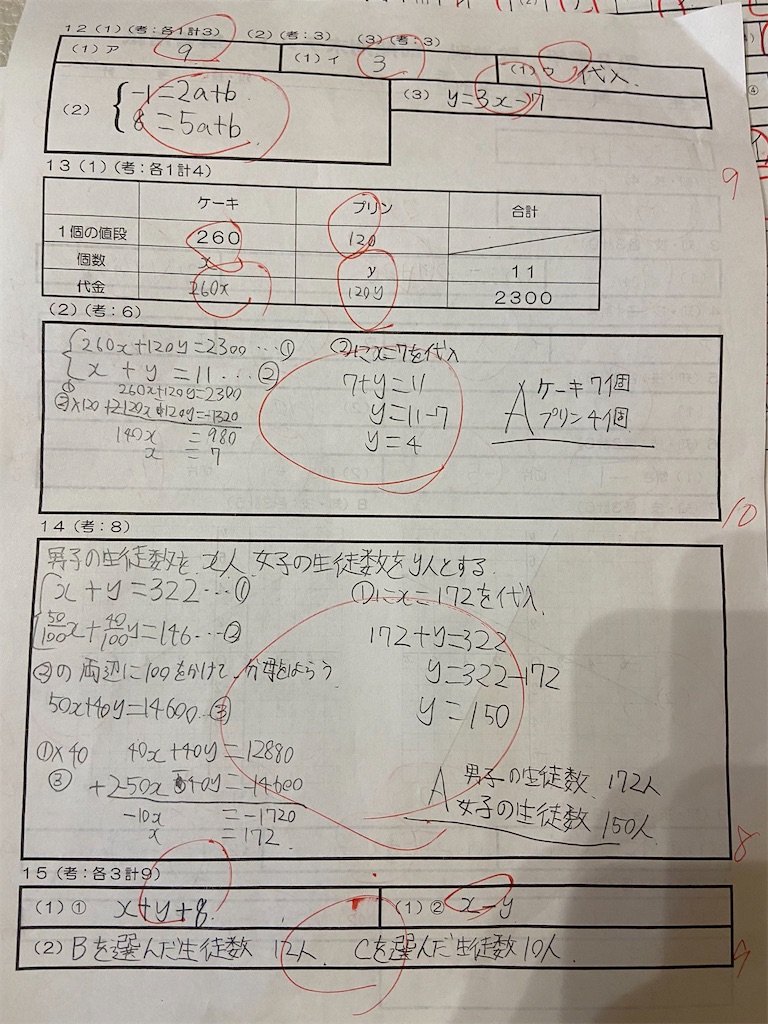 12（1）（考：各1計3）（2）（考：3）（3）（考：3）
（1）ア 9 （1）イ 3 （1）ウ 代入
（2） { -1=2a+b
8=5a+b
（3） y=3x-7
9
13（1）（考：各1計4）
ケーキ プリン 合計
1個の値段 260 120
個数 x y 11
代金 260x 120y 2300
（2）（考：6）
{ 260x+120y=2300 …①
x + y = 11 … ②
① 260x+120y=2300
②×120 +2-120x-120y=-1320
140x = 980
x = 7
②にx=7を代入
7+y=11
y=11-7
y=4
A ケーキ 7個
プリン 4個
10
14（考：8）
男子の生徒数を x人 女子の生徒数をy人とする
{ x + y = 322 …①
50/100x+40/100y=146…②
②の両辺に100をかけて、分母をはらう
50x+40y=14600…③
①×40 40x+40y=12880
③ +2-50x-40y=-14600
-10x = -1720
x = 172
①にx=172を代入
172+y=322
y=322-172
y=150
A 男子の生徒数 172人
女子の生徒数 150人
8
15（考：各3計9）
（1）① x+y+8 （1）② x-y
（2）Bを選んだ生徒数 12人 Cを選んだ生徒数10人